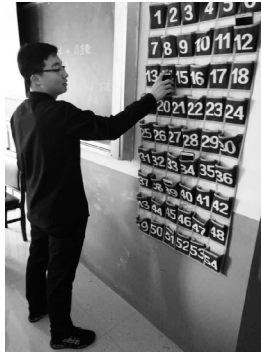 1 2 3 4 5 6
7 8 9 10 11 12
13 15 16 17 18
20 21 22 23 24
25 26 27 28 29 30
31 32 33 34 35 36
37 38 39 40 41 42
43 44 45 46 47 48
49 50 51 52 53 54